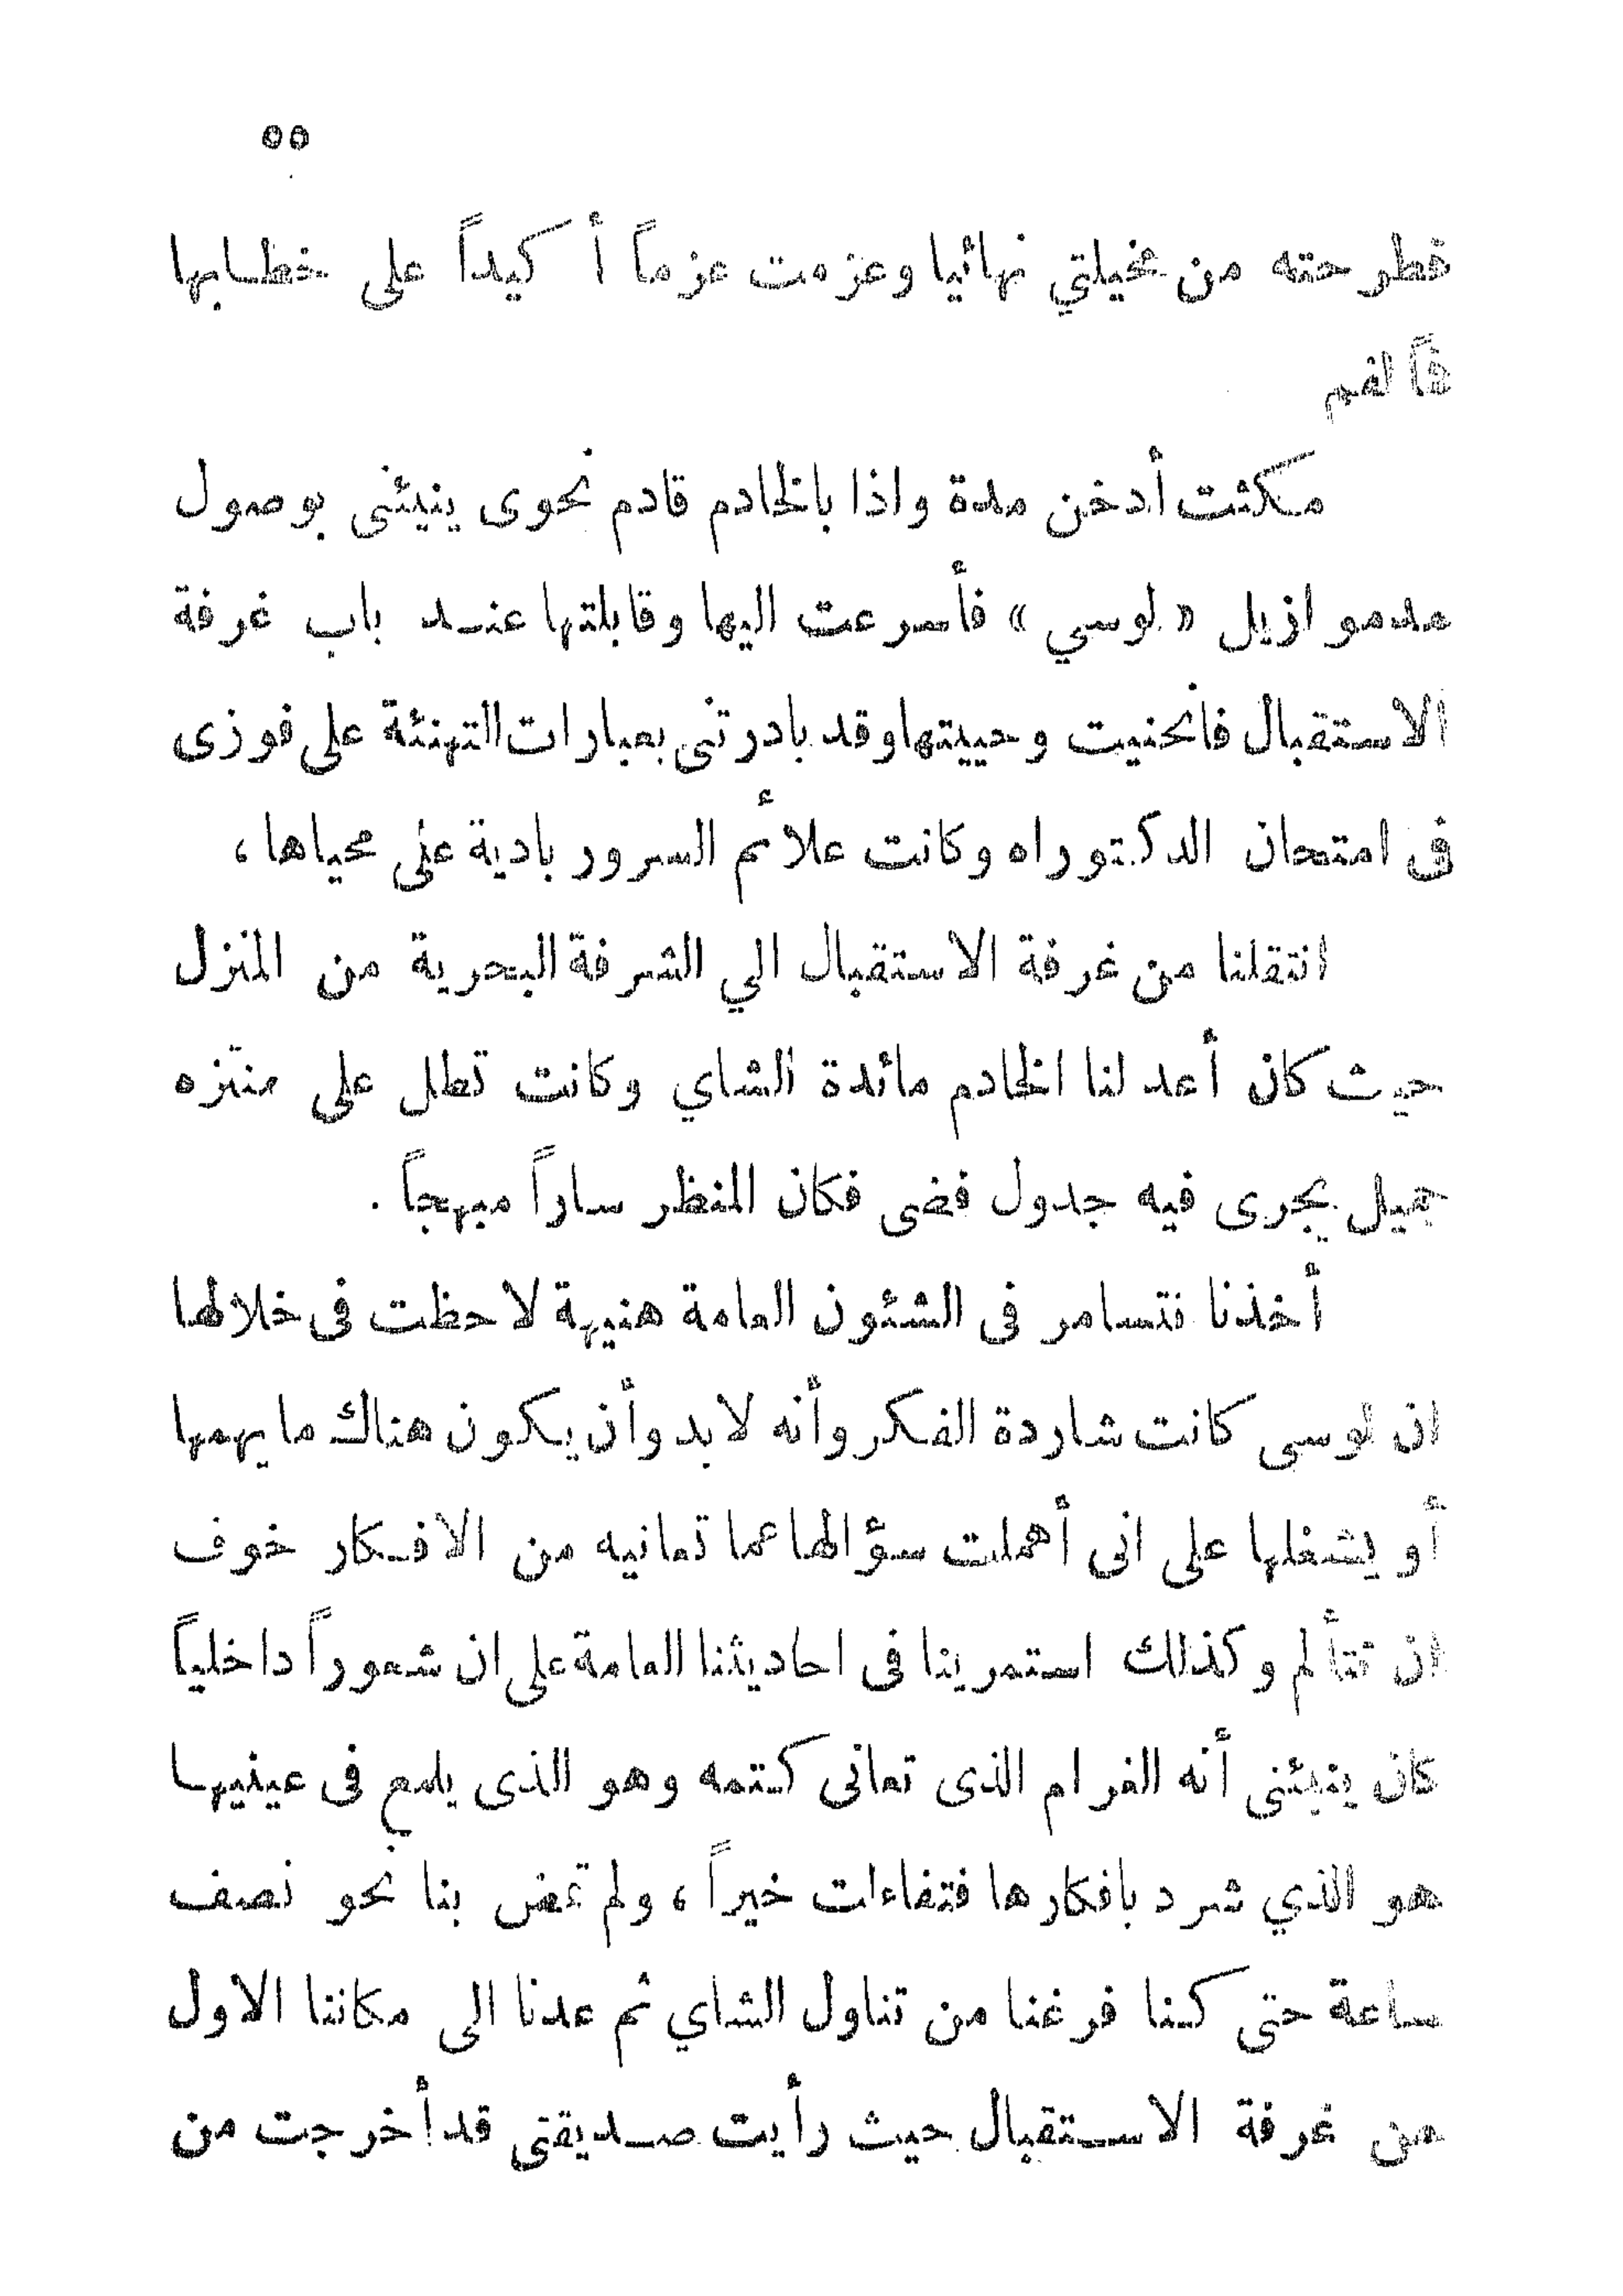 ٥٥
فطرحته من مخيلتي نهائيا وعزمت عزماً أكيداً على خطابها
فماً لفم
مكثت أدخن مدة واذا بالخادم قادم نحوى ينبئنى بوصول
مدموازيل « لوسي » فأسرعت اليها وقابلتها عند باب غرفة
الاستقبال فانحنيت وحييتها وقد بادرتنى بعبارات التهنئة على فوزى
فى امتحان الدكتوراه وكانت علائم السرور بادية على محياها ،
انتقلنا من غرفة الاستقبال الي الشرفة البحرية من المنزل
حيث كان أعد لنا الخادم مائدة الشاي وكانت تطل على منتزه
جميل يجرى فيه جدول فضى فكان المنظر ساراً مبهجاً .
أخذنا نتسامر فى الشئون العامة هنيهة لاحظت فى خلالها
ان لوسى كانت شاردة الفكر وأنه لابد وأن يكون هناك ما يهمها
أو يشغلها على انى أهملت سؤالها عما تعانيه من الافكار خوف
ان تتألم وكذلك استمرينا فى احاديثنا العامة على ان شعوراً داخلياً
كان ينبئنى أنه الغرام الذى تعانى كتمه وهو الذى يلمع فى عينيها
هو الذي شرد بافكارها فتفاءلت خيراً ، ولم تمض بنا نحو نصف
ساعة حتى كنا فرغنا من تناول الشاي ثم عدنا الى مكاننا الاول
من غرفة الاستقبال حيث رأيت صديقتى قد أخرجت من